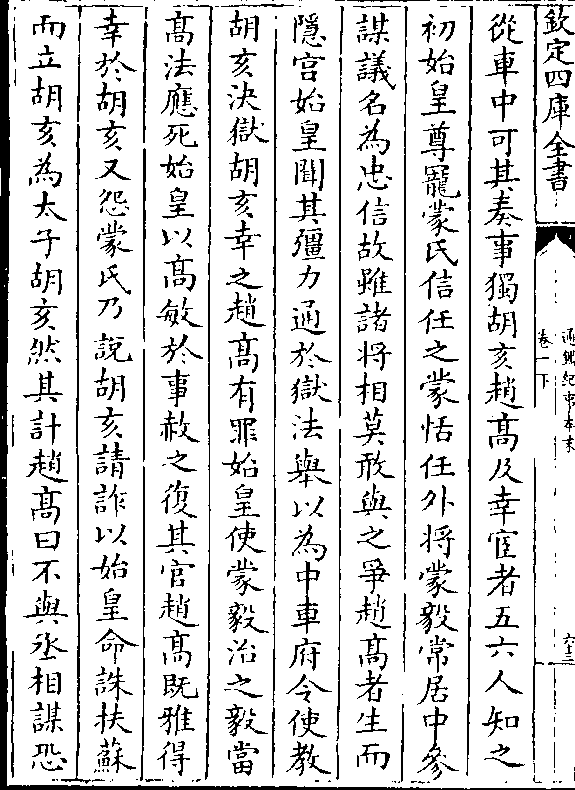 欽定四庫全書
通鑑紀事本末
卷一下
六十三
從車中可其奏事獨胡亥趙髙及幸宦者五六人知之
初始皇尊寵蒙氏信任之蒙恬任外將蒙毅常居中參
謀議名為忠信故雖諸將相莫敢與之爭趙髙者生而
隱宫始皇聞其彊力通於獄法舉以為中車府令使教
胡亥決獄胡亥幸之趙髙有罪始皇使蒙毅治之毅當
髙法應死始皇以髙敏於事赦之復其官趙髙既雅得
幸於胡亥又怨蒙氏乃說胡亥請詐以始皇命誅扶蘇
而立胡亥為太子胡亥然其計趙髙曰不與丞相謀恐